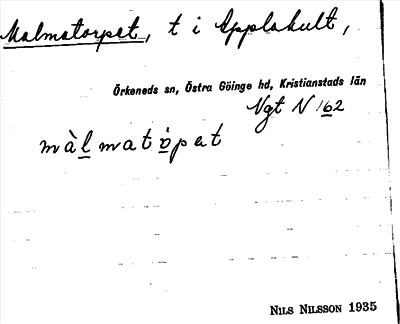 Malmatorpet, t i Applakult,
Örkeneds sn, Östra Göinge hd, Kristianstads län
Vgt N 162
màlmatòpet
NILS NILSSON 1935